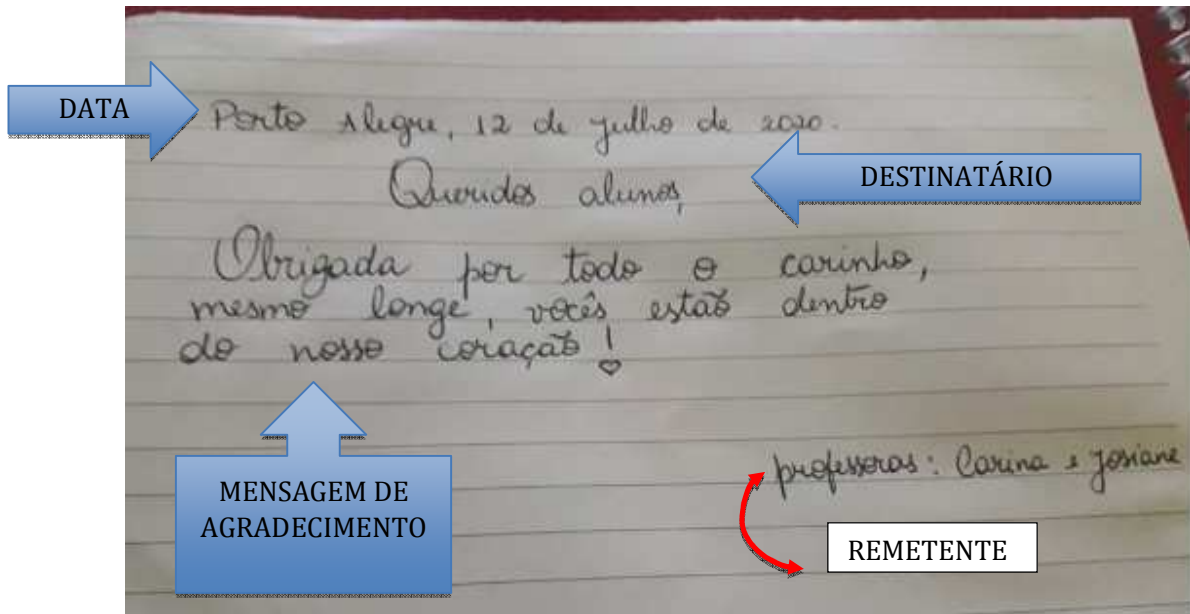 DATA
Porto Alegre, 12 de julho de 2020.
DESTINATÁRIO
Queridos alunos,
Obrigada por todo o carinho,
mesmo longe, vocês estão dentro
do nosso coração!
MENSAGEM DE
AGRADECIMENTO
professoras: Carina e Josiane
REMETENTE